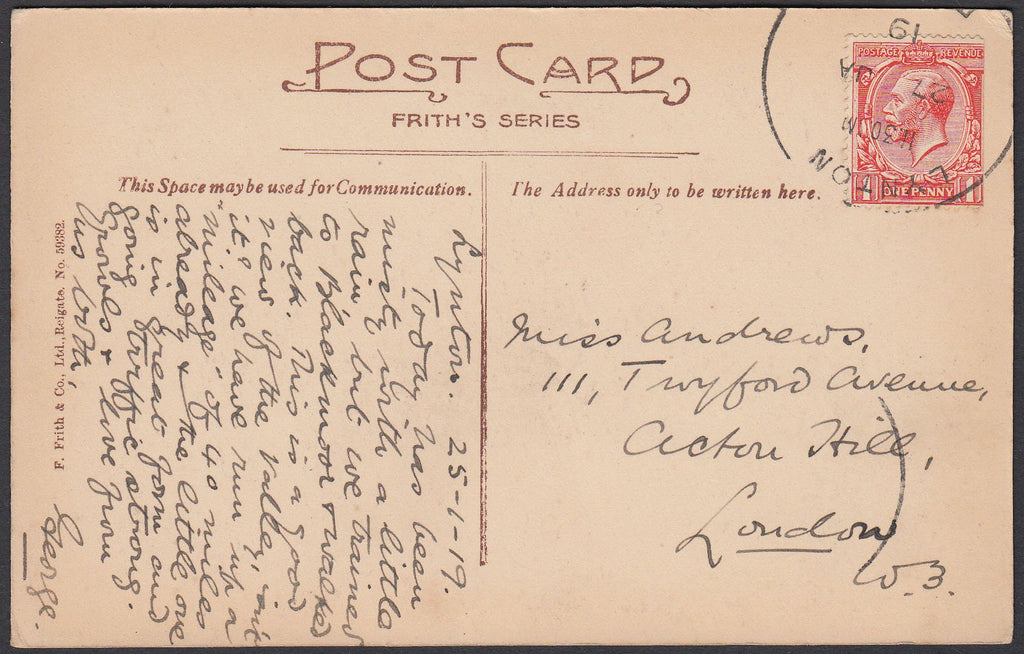 POST CARD
FRITH'S SERIES
This Space may be used for Communication.
The Address only to be written here.
F. Frith & Co., Ltd., Reigate. No. 59382.
POSTAGE REVENUE
1 ONE PENNY 1
LYNTON
11.30 M
27 JA
19
Lynton. 25-1-19.
Today has been
misty with a little
rain but we trained
to Blackmoor & walked
back. This is a good
view of the valley, isn't
it? we have run up a
"mileage" of 40 miles
already & the little one
is in great form and
going strong.
Yowls & love from
us both,
George.
Miss Andrews,
111, Twyford Avenue,
Acton Hill,
London
W.3.